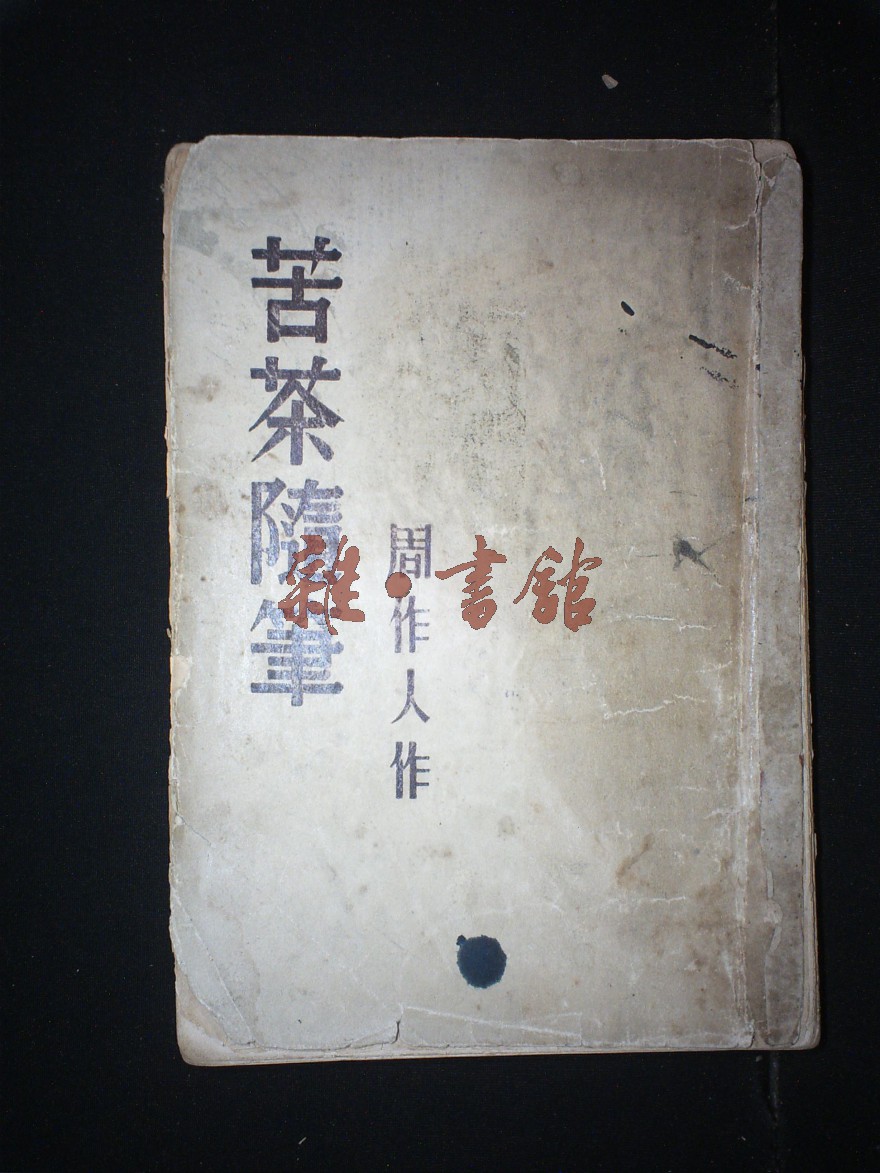 苦茶隨筆
周作人作
雜·書館